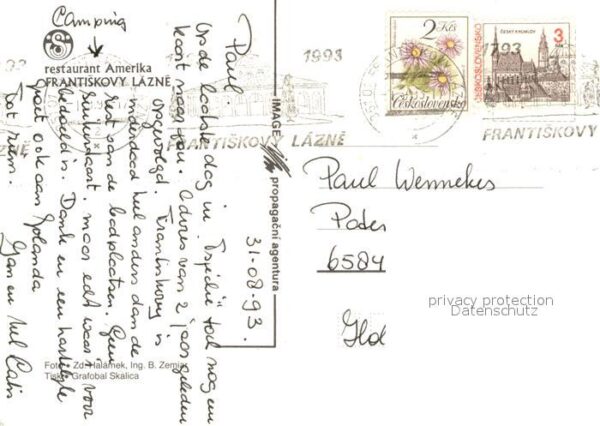 Camping
restaurant Amerika
FRANTIŠKOVY LÁZNĚ
Paul.
Onze laatste dag in Tsjechië toch nog een
kaart naar jou. Advies van 2 jaar geleden
opgevolgd. Frantiskovy is
inderdaad heel anders dan de
rest van de badplaatsen. Geen
maar echt waar 't voor
bedoeld is. Dank en een hartelijke
groet ook aan Jolanda
Tot ziens. Jan en
31-08-93.
IMAGE propagační agentura
Foto: Zd. Halámek, Ing. B. Zemin
Tisk: Grafobal Skalica
1993
FRANTIŠKOVY LÁZNĚ
2 Kčs
Československo
1793
FRANTIŠKOVY
ČESKÝ KRUMLOV
3 Kčs
ČESKOSLOVENSKO
Paul Wennekes
6584
Hol
privacy protection
Datenschutz